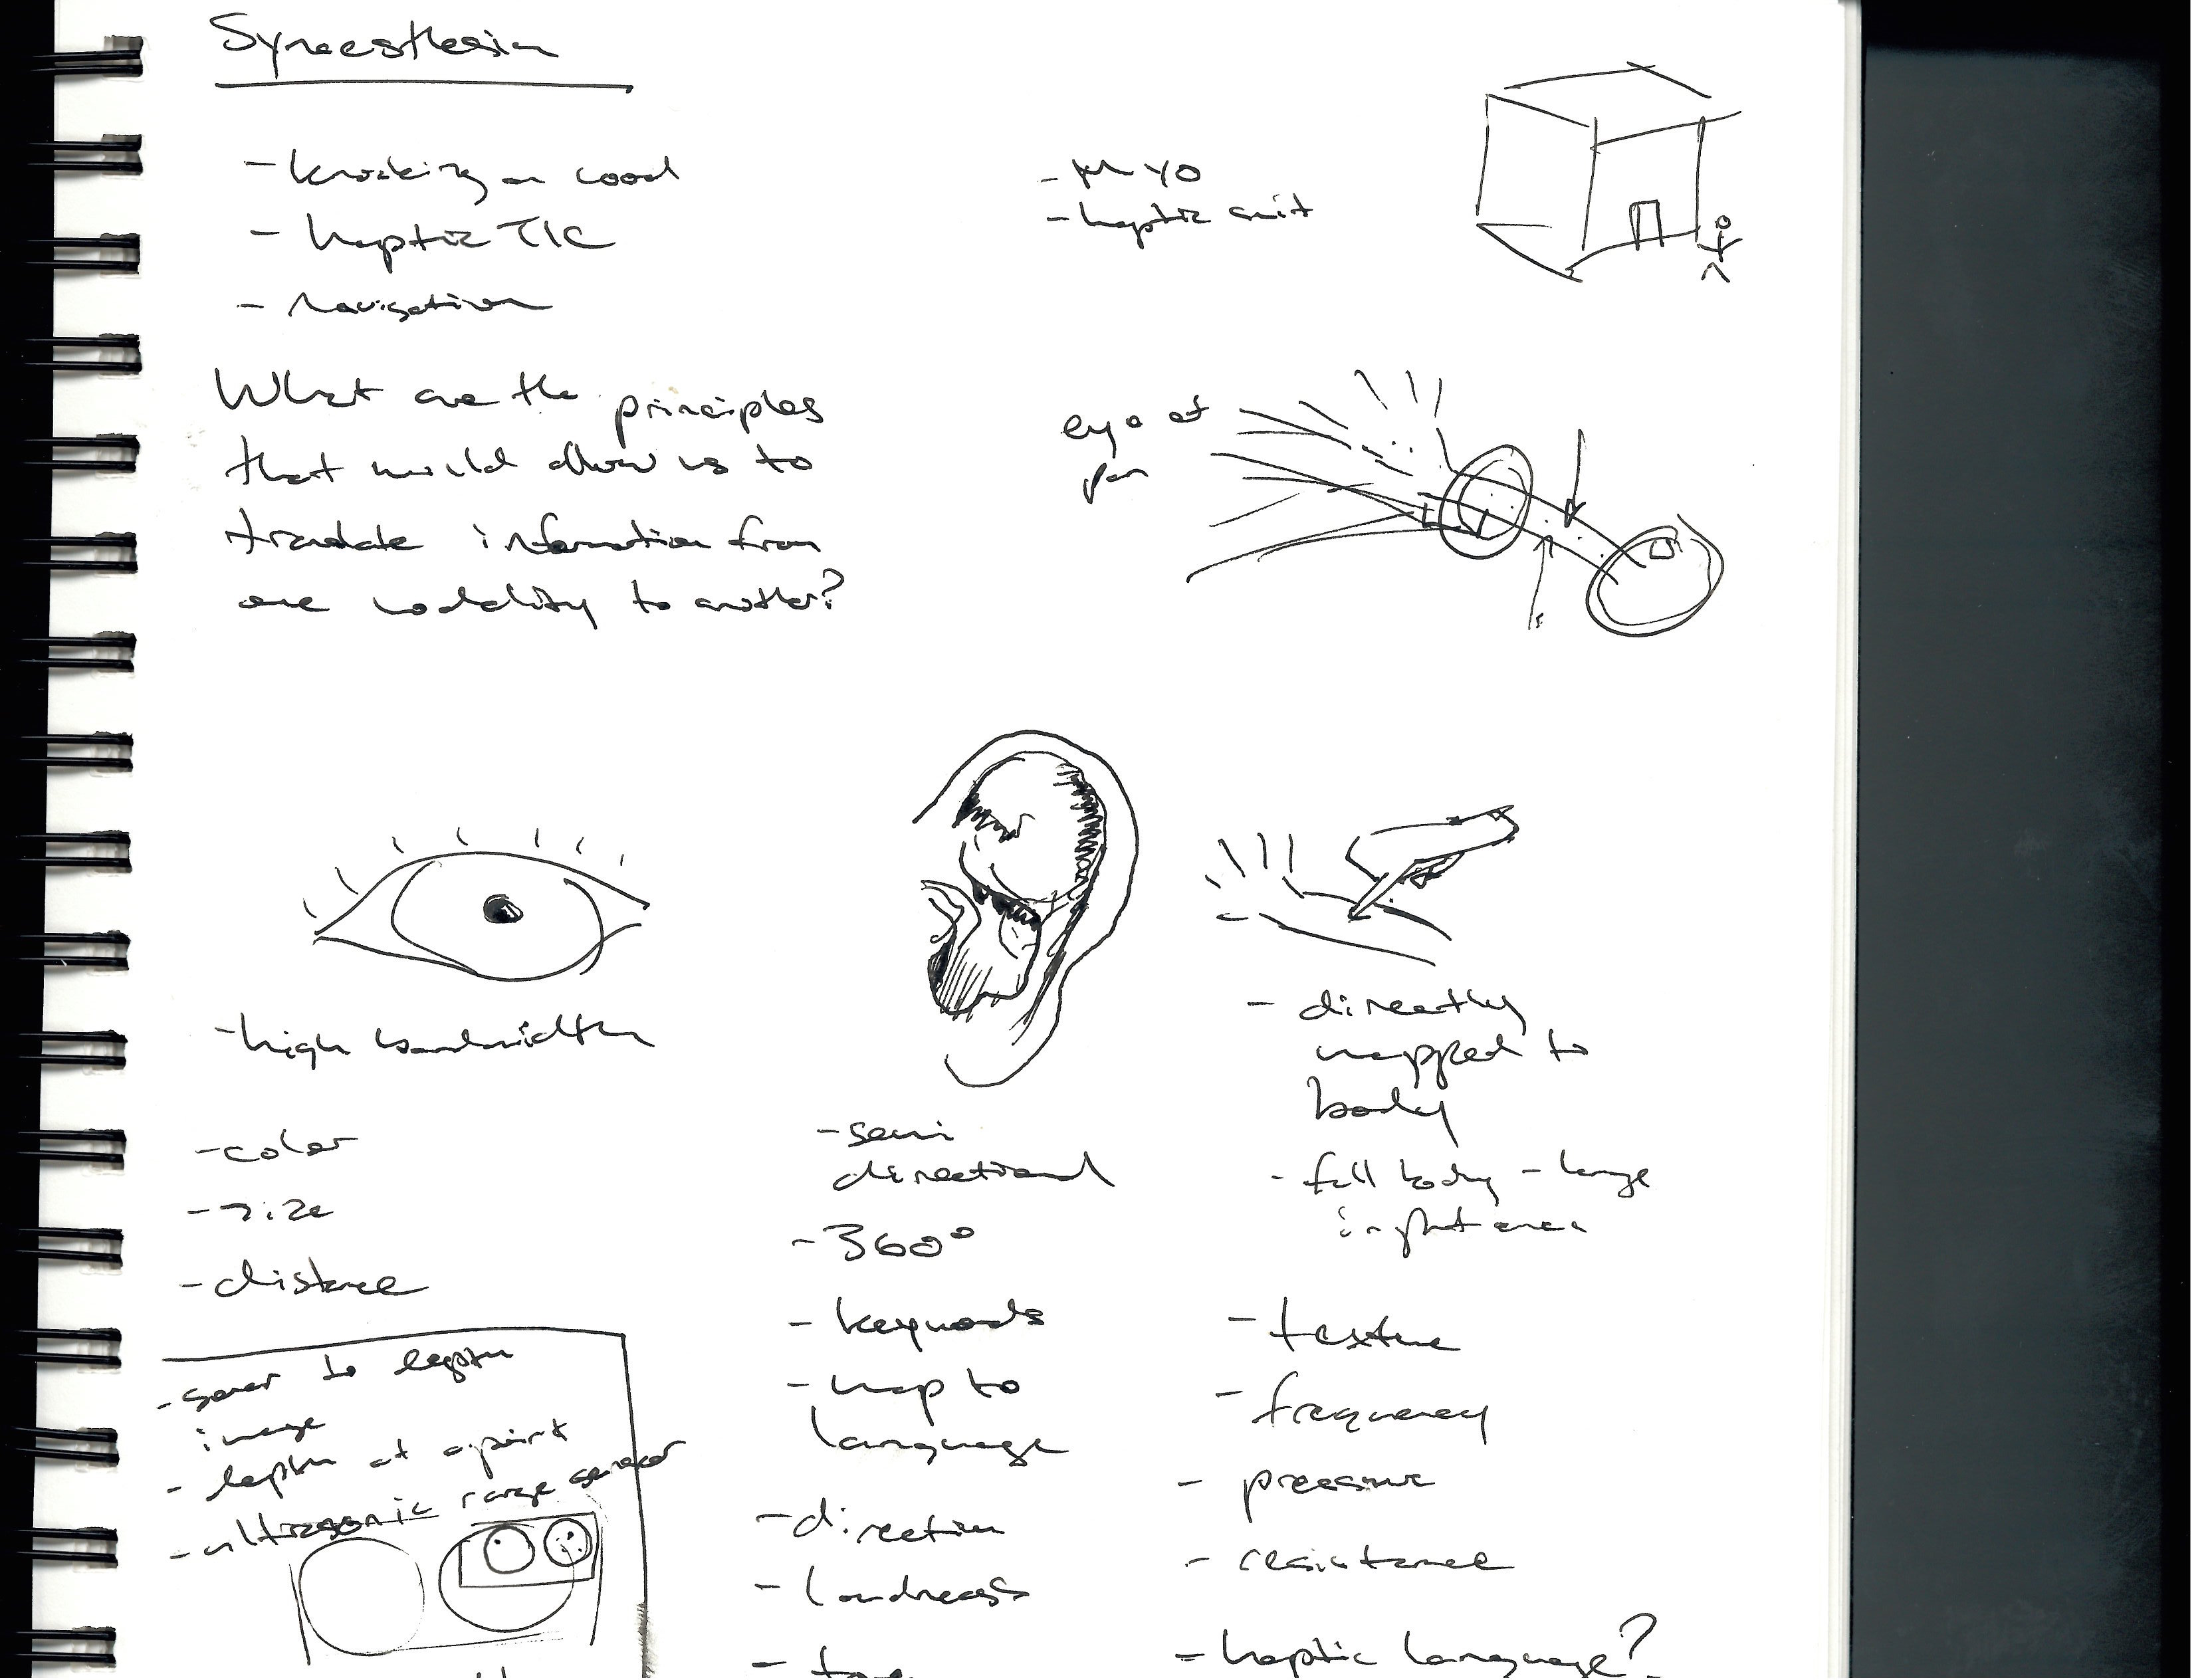 Synaesthesia
- knocking on wood
- haptic TIC
- navigation
- MYO
- haptic suit
What are the principles
that would allow us to
translate information from
one modality to another?
eye at
- high bandwidth
- color
- size
- distance
- to depth
image
- depth at a point
- ultrasonic range sensor
- semi
directional
- 360°
- keywords
- map to
language
- direction
- loudness
- directly
mapped to
body
- full body - large
input area
- texture
- frequency
- pressure
- resistance
- haptic language?